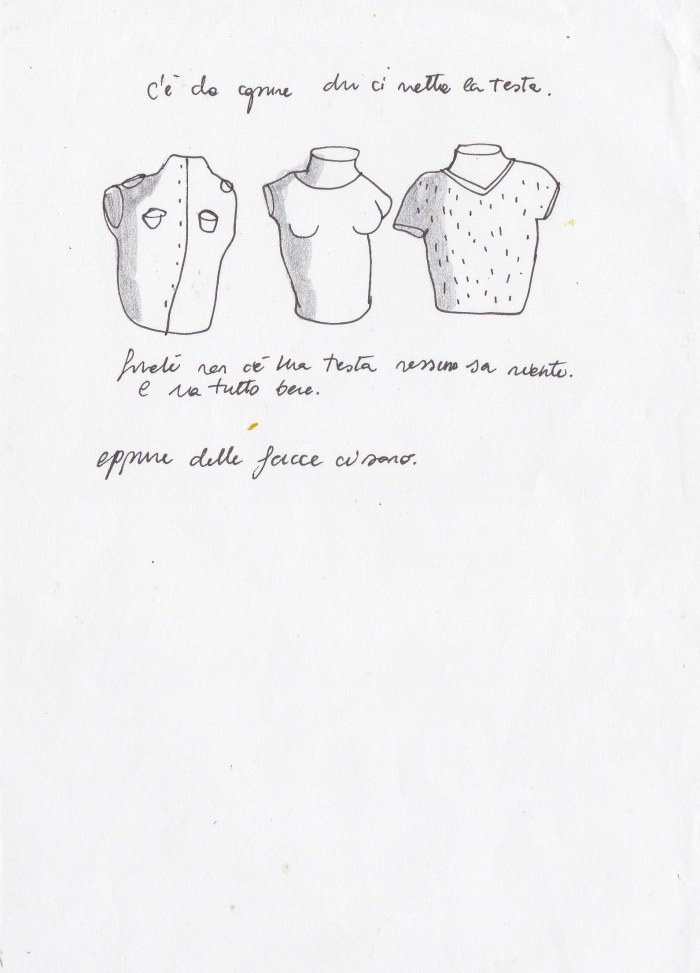 C'è da capire chi ci mette la testa.
finché non c'è una testa nessuno sa niente.
e va tutto bene.
eppure delle facce ci sono.